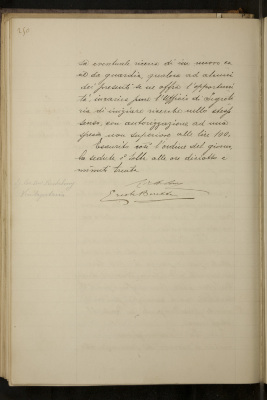 la eventuale ricerca di un nuovo ca
ne da guardia, qualora ad alcuni
dei presenti se ne offra l'opportuni
tà, incarica pure l'Ufficio di Segrete
ria di iniziare ricerche nello stesso
senso, con autorizzazione ad una
spesa non superiore alle Lire 100.
Esaurito così l'ordine del giorno
la seduta è tolta alle ore diciotto e
minuti trenta.